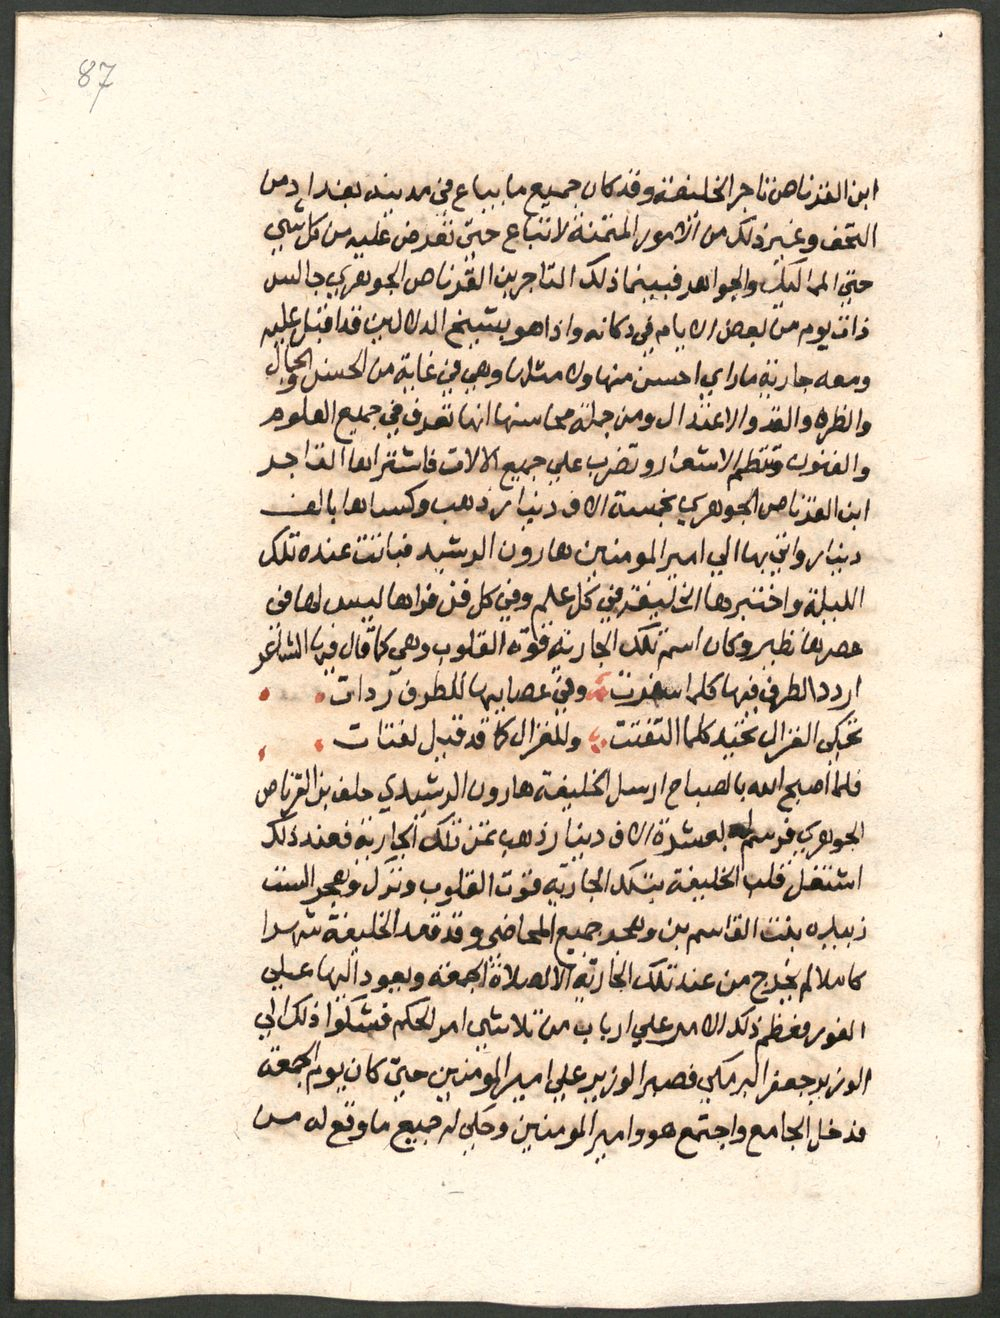 87
ابن القرناص تاجر الخليفة وقد كان جميع ما يباع في مدينة بغداد من
التحف وغير ذلك من الامور المتمنة لا تباع حتى تعرض عليه من كل شي
حتي المماليك والجواهر فبينما ذلك التاجر بن القرناص الجوهري جالس
ذات يوم من بعض الايام في دكانه واذا هو بشيخ الدلالين قد اقبل عليه
ومعه جارية ماراي احسن منها ولا مثلها وهي في غاية من الحسن والجمال
والظرف والقد والاعتدال ومن جملة محاسنها انها تعرف في جميع العلوم
والفنون وتنظم الاشعار وتضرب علي جميع الالات فاشتراها التاجر
ابن القرناص الجوهري بخمسة الاف دينار ذهب وكساها بالف
دينار واتي بها الي امير المومنين هارون الرشيد فباتت عنده تلك
الليلة واختبرها الخليفة في كل علم وفي كل فن فراها ليس لها في
عصرها نظير وكان اسم تلك الجارية قوت القلوب وهي كما قال فيها الشاعر
اردد الطرف فيها كلما اسفرت وفي عصابها للطرف ردات
تحكي الغزال بجيد كلما التفتت وللغزال كما قد قيل لفتات
فلما اصبح الله بالصباح ارسل الخليفة هارون الرشيد الي خلف بن القرناص
الجوهري فرسم له بعشرة الاف دينار ذهب ثمن تلك الجارية فعند ذلك
اشتغل قلب الخليفة بتلك الجارية قوت القلوب وترك وهجر الست
زبيده بنت القاسم بن وهجر جميع المحاضي وقد قعد الخليفة شهرا
كاملا لم يخرج من عند تلك الجارية الا لصلاة الجمعة ويعود اليها علي
الفور فعظم ذلك الامر علي ارباب من تلاشي امر الحكم فشكوا ذلك الي
الوزير جعفر البرمكي فصبر الوزير علي امير المومنين حتي كان يوم الجمعة
فدخل الجامع واجتمع هو وامير المومنين وحكي له جميع ما وقع له من